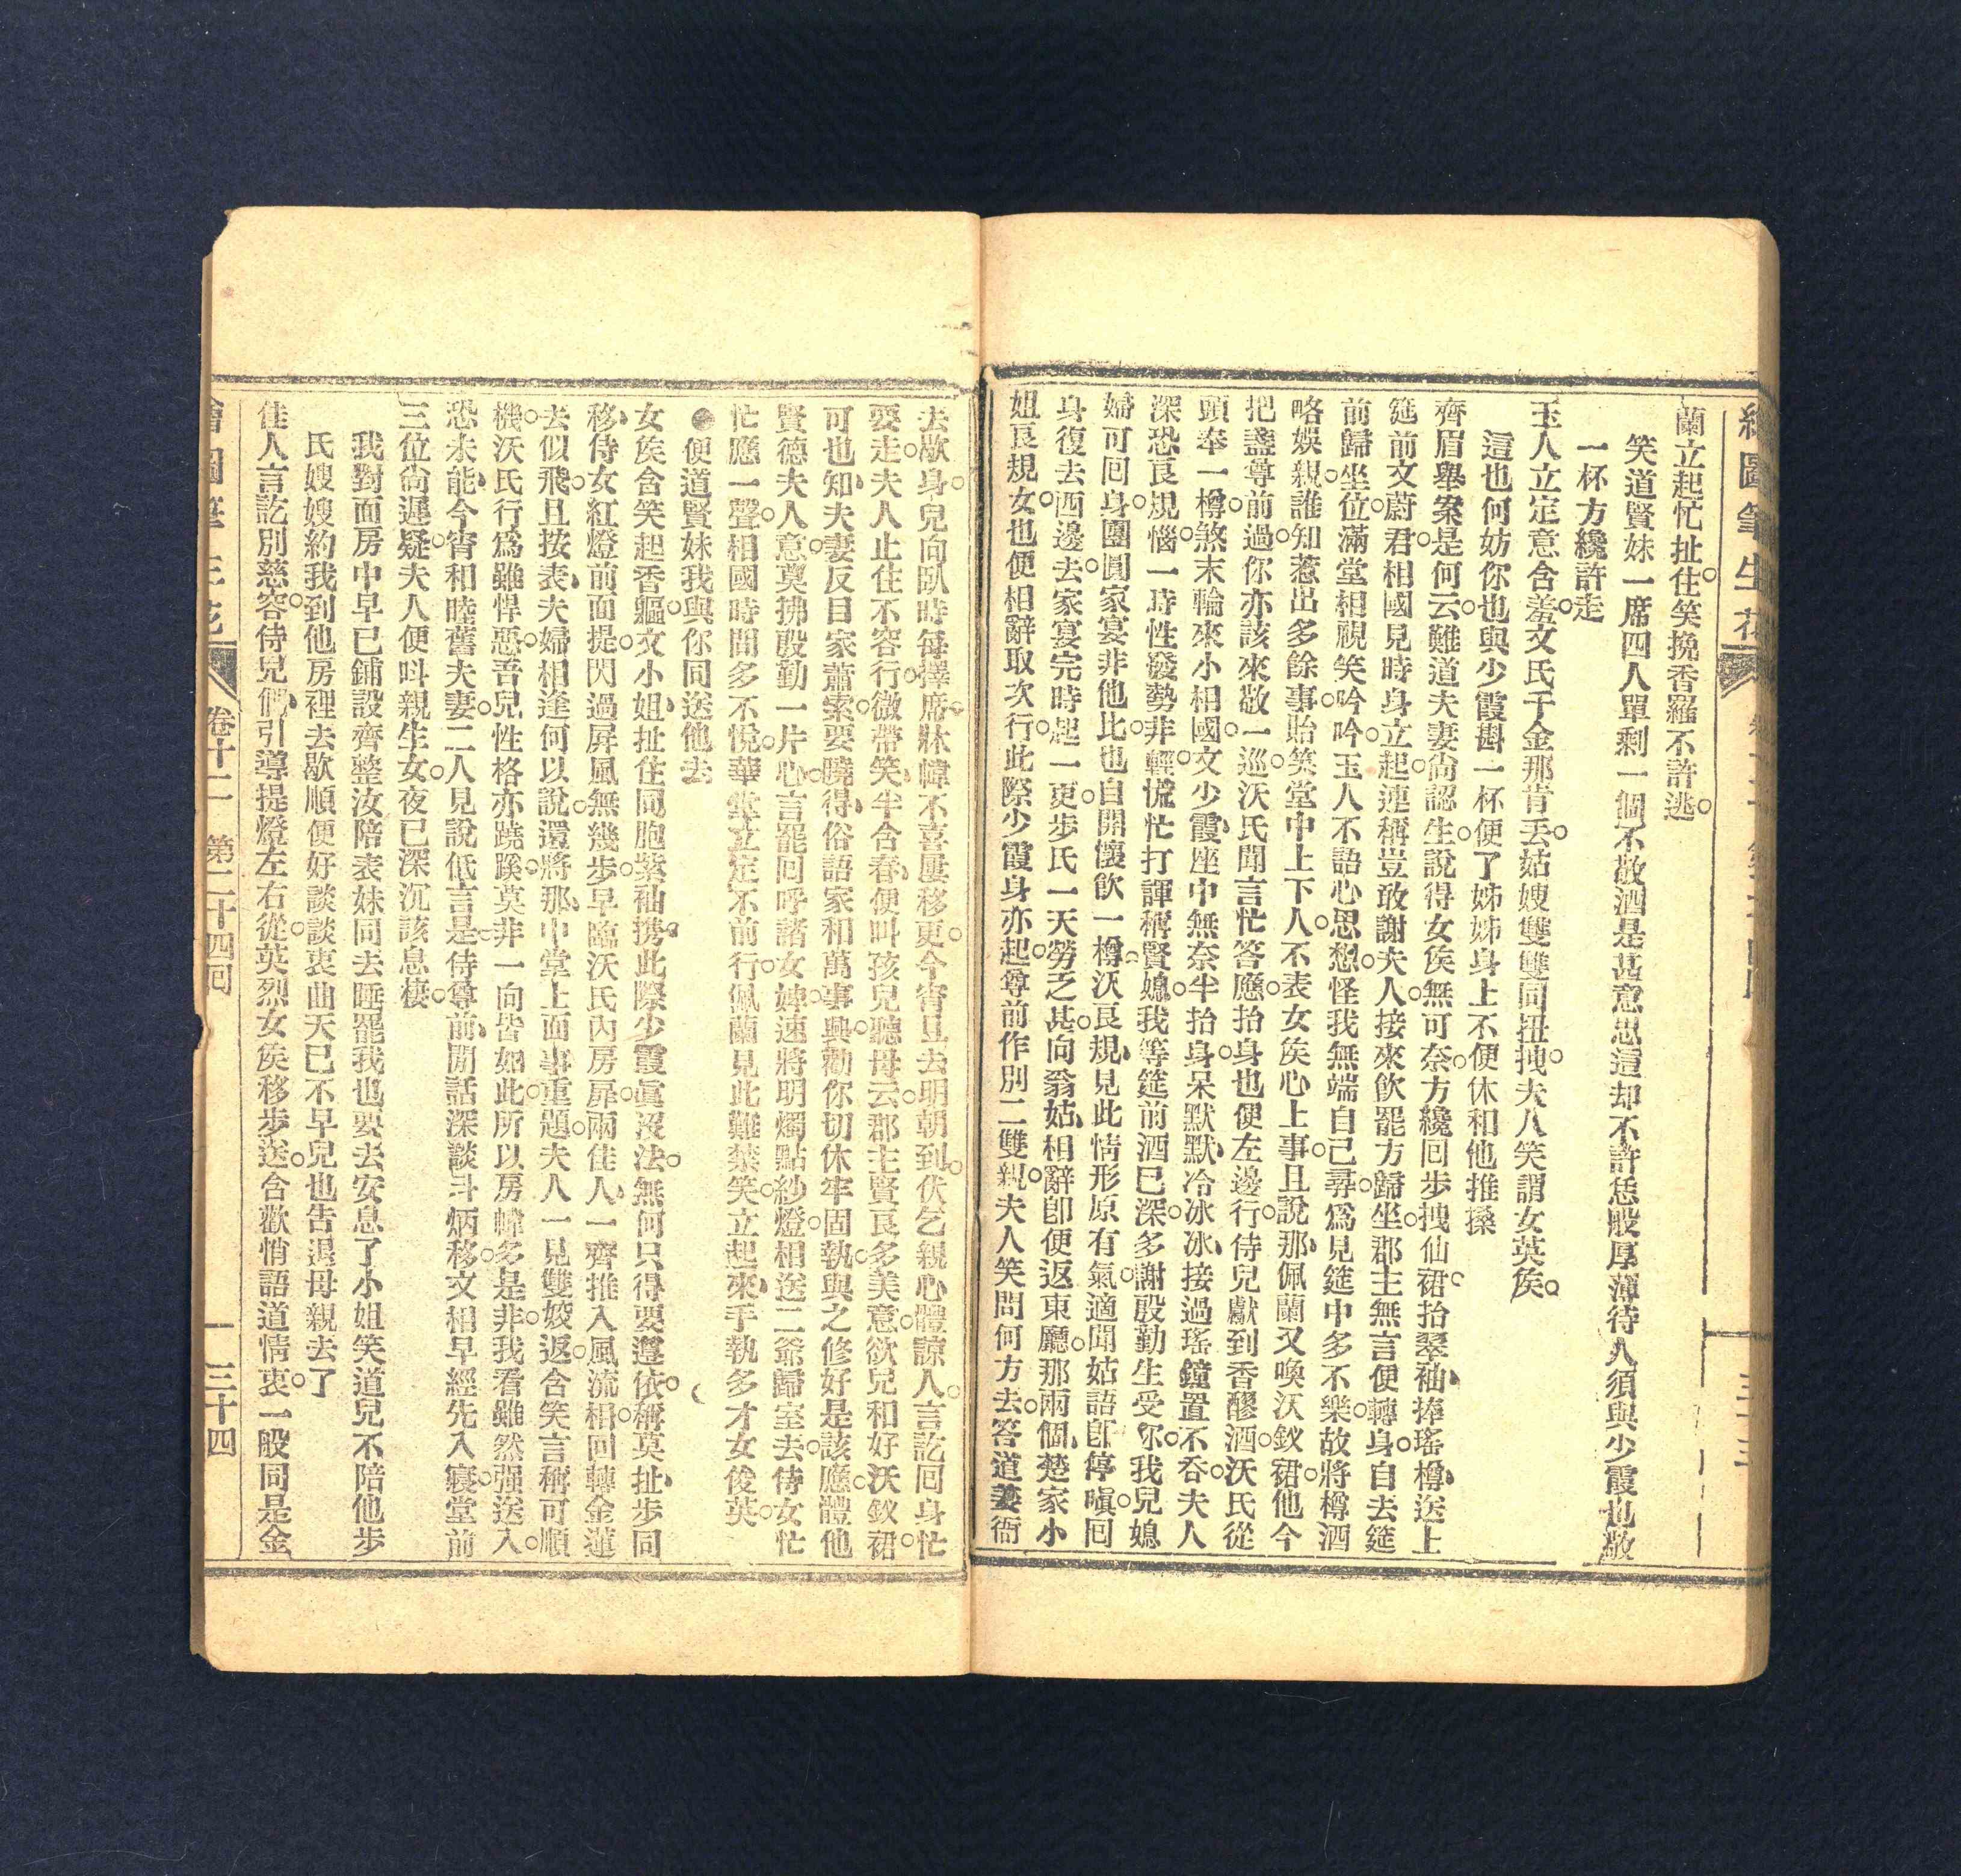 繪圖筆生花
蘭立起忙扯住笑挽香羅不許逃
笑道賢妹一席四人單剩一個不敬酒是甚意思這却不許恁般厚薄待人須與少霞也敬
一杯方纔許走
玉人立定意含羞文氏千金那肯丢姑嫂雙雙同扭拽夫人笑謂女英侯
這也何妨你也與少霞斟一杯便了姊姊身上不便休和他推搡
齊眉舉案是何云難道夫妻尙認生說得女侯無可奈方纔回步拽仙裙抬翠袖捧瑤樽送上
筵前文蔚君相國見時身立起連稱豈敢謝夫人接來飲罷方歸坐郡主無言便轉身自去筵
前歸坐位滿堂相視笑吟吟玉人不語心思想怪我無端自己尋爲見筵中多不樂故將樽酒
略娛親誰知惹出多餘事貽笑堂中上下人不表女侯心上事且說那佩蘭又喚沃釵裙他今
把盞尊前過你亦該來敬一巡沃氏聞言忙答應抬身也便左邊行侍兒獻到香醪酒沃氏從
頭奉一樽煞末輪來小相國文少霞座中無奈半抬身呆默默冷冰冰接過瑤鐘置不吞夫人
深恐良規惱一時性發勢非輕慌忙打諢稱賢媳我等筵前酒已深多謝殷勤生受你我兒媳
婦可回身團圓家宴非他比也自開懷飲一樽沃良規見此情形原有氣適聞姑語卽停嗔回
身復去西邊去家宴完時起一更步氏一天勞乏甚向翁姑相辭卽便返東廳那兩個楚家小
姐良規女也便相辭取次行此際少霞身亦起尊前作別二雙親夫人笑問何方去答道義衙
去歇身兒向臥時每擇席牀幃不喜屢移更今宵且去明朝到伏乞親心體諒人言訖回身忙
要走夫人止住不容行微帶笑半含春便叫孩兒聽母云郡主賢良多美意欲兒和好沃釵裙
可也知夫妻反目家蕭索要曉得俗語家和萬事興勸你切休牢固執與之修好是該應體他
賢德夫人意莫拂殷勤一片心言罷回呼諸女婢速將明燭點紗燈相送二爺歸室去侍女忙
忙應一聲相國時間多不悅華堂立定不前行佩蘭見此難禁笑立起來手執多才女俊英
便道賢妹我與你同送他去
女侯含笑起香軀文小姐扯住同胞紫袖携此際少霞眞沒法無何只得要遵依稱莫扯步同
移侍女紅燈前面提閃過屏風無幾步早臨沃氏內房扉兩佳人一齊推入風流相回轉金蓮
去似飛且按表夫婦相逢何以說還將那中堂上面事重題夫人一見雙姣返含笑言稱可順
機沃氏行爲雖悍惡吾兒性格亦蹺蹊莫非一向皆如此所以房幃多是非我看雖然强送入
恐未能今宵和睦舊夫妻二人見說低言是侍尊前閒話深談斗炳移文相早經先入寢堂前
三位尙遲疑夫人便呌親生女夜已深沉該息棲
我對面房中早已鋪設齊整汝陪表妹同去睡罷我也要去安息了小姐笑道兒不陪他步
氏嫂嫂約我到他房裡去歇順便好談談衷曲天已不早兒也告退母親去了
佳人言訖別慈容侍兒們引導提燈左右從英烈女侯移步送含歡悄語道情衷一般同是金
繪圖筆生花 卷十二 第二十四回 三十四